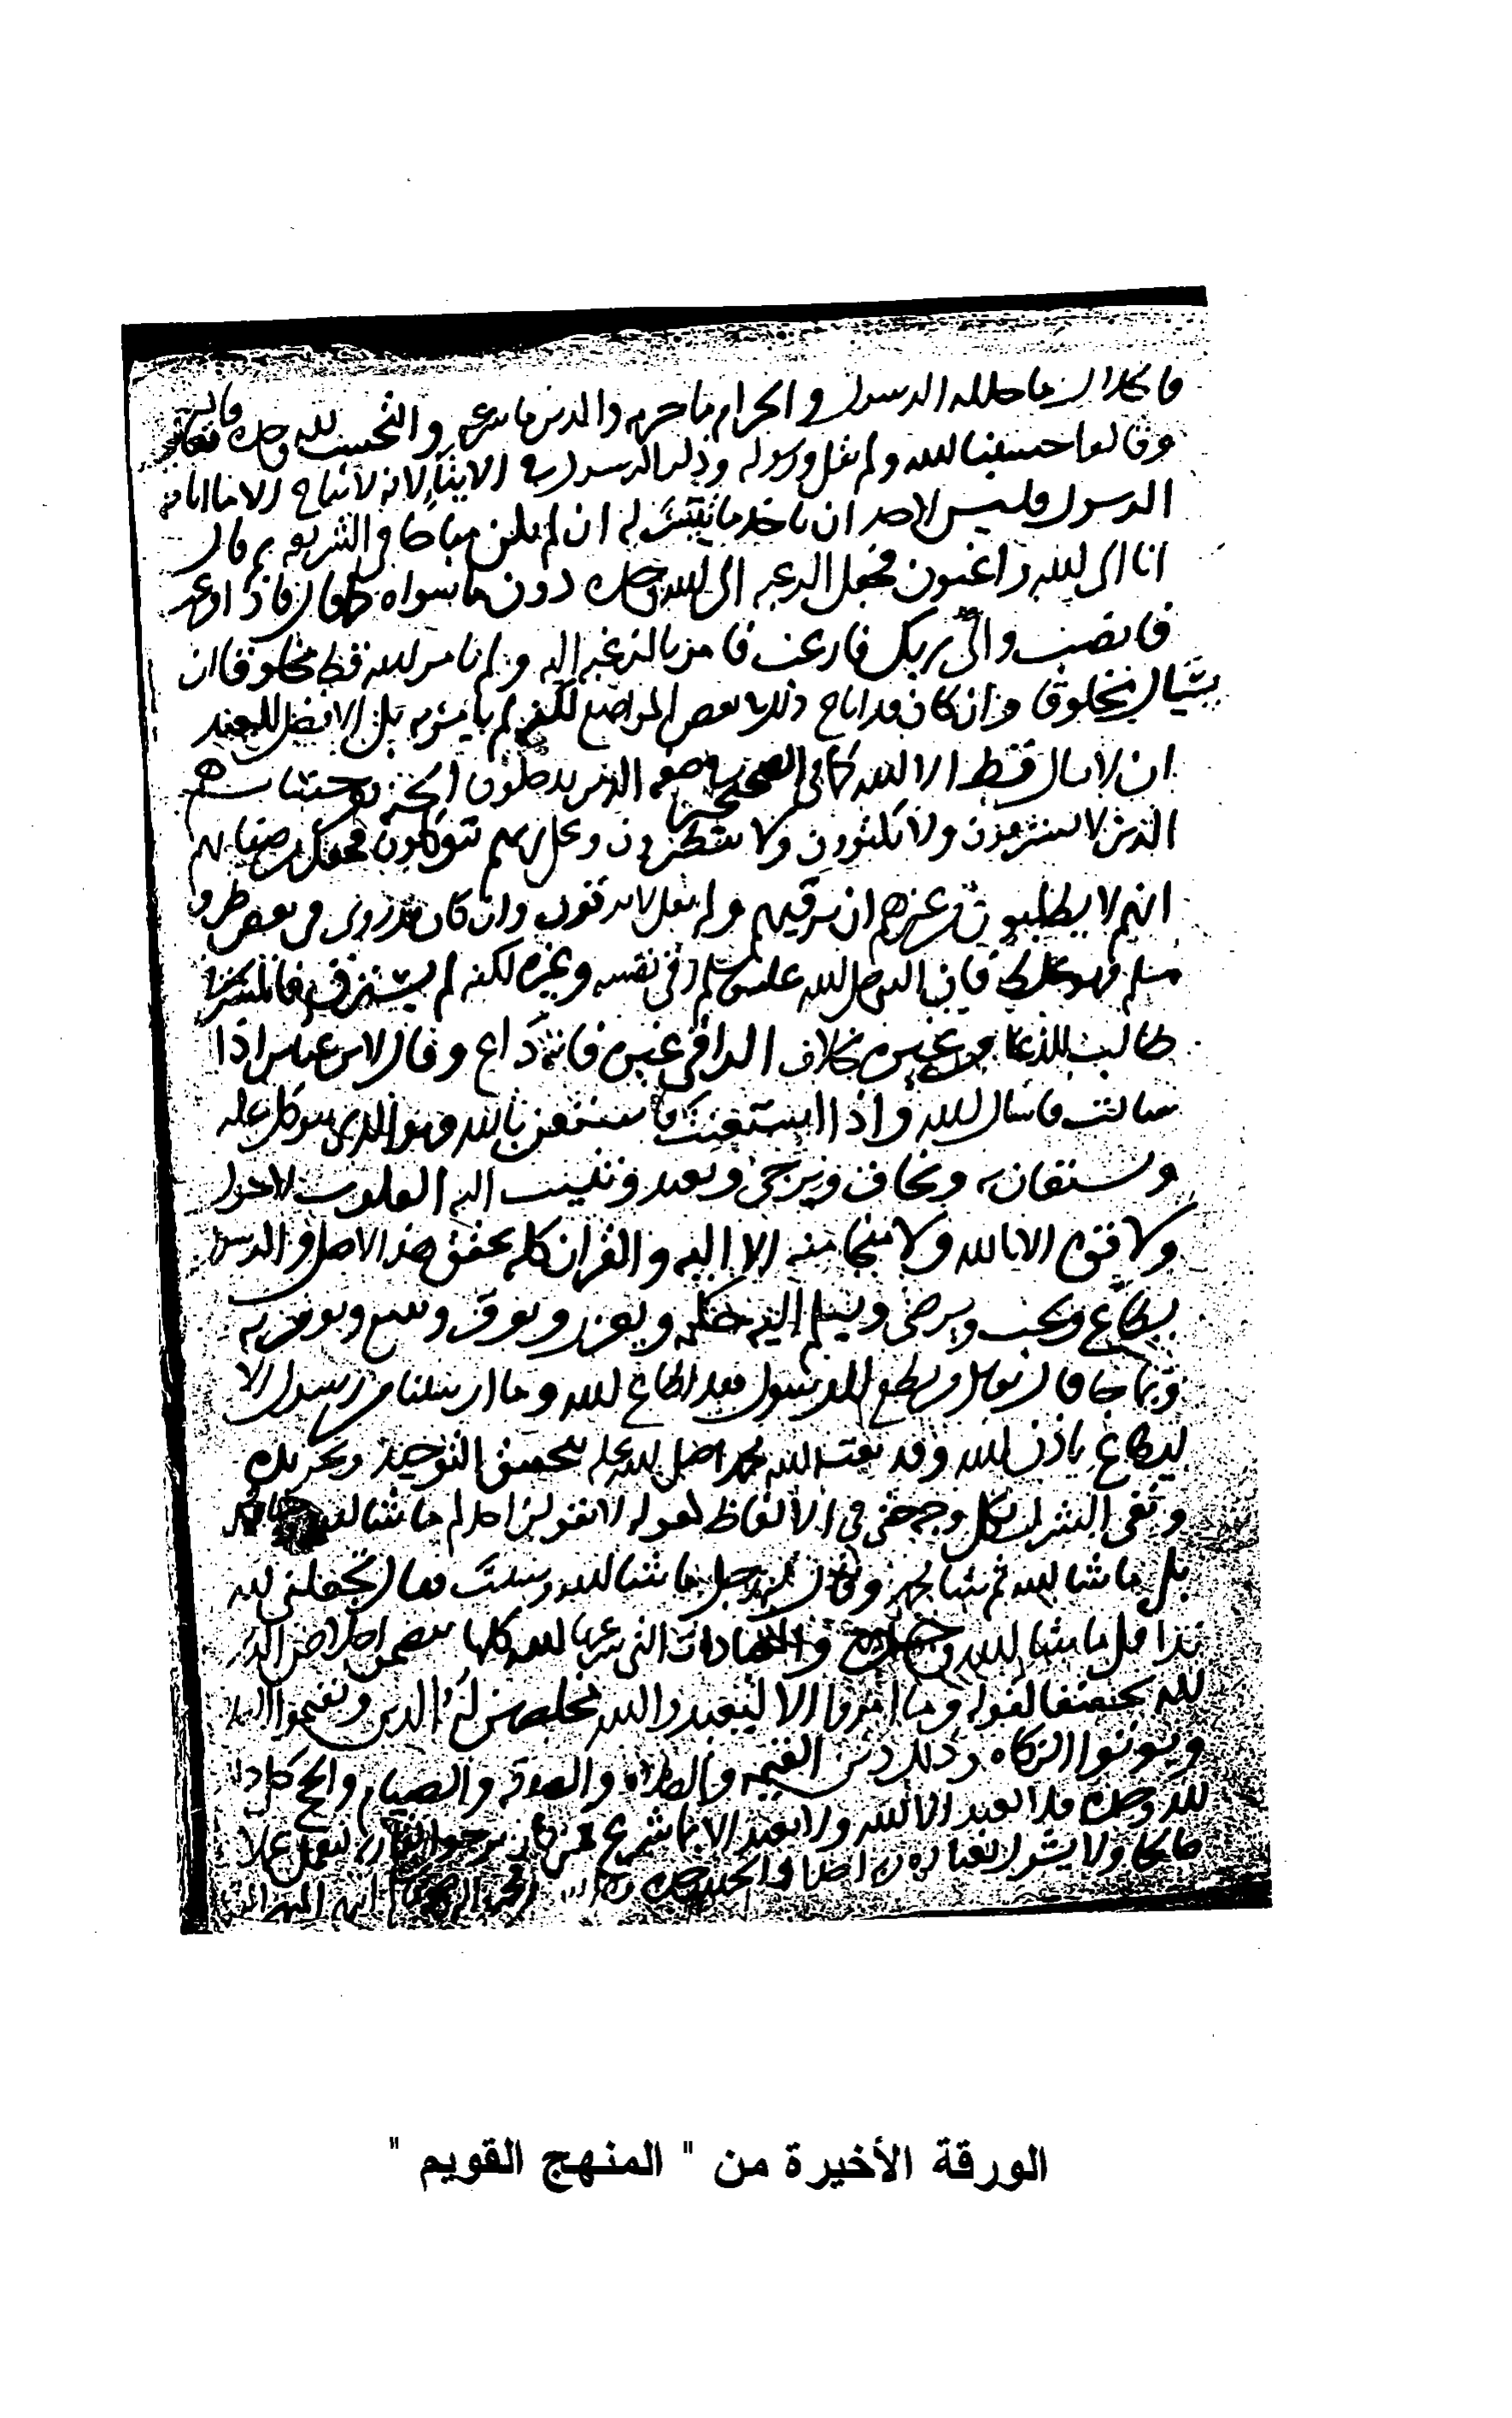 فالحلال ما حلله الرسول والحرام ما حرمه والدين ما شرعه والتحسب لله وحده فانه تعالى
وقالوا حسبنا الله ولم يقل ورسوله وذكر الرسول في الايتاء لانه لا يباح الا ما اباحه
الرسول فليس لاحد ان ياخذ ما تيسر له ان لم يكن مباحا في الشريعة ثم قال
انا الى الله راغبون فجعل الرغبه الى الله وحده دون ما سواه كما قال فاذا فرغت
فانصب والى ربك فارغب فامر بالرغبه اليه ولم يامر الله قط مخلوقا ان
يسال مخلوقا وان كان قد اباح ذلك في بعض المواضع لكنه لم يامر به بل الافضل للعبد
ان لا يسال قط الا الله كما في الصحيحين في صفه الذين يدخلون الجنه بغير حساب هم
الذين لا يسترقون ولا يكتوون ولا يتطيرون وعلى ربهم يتوكلون فجعل من صفاتهم
انهم لا يطلبون من غيرهم ان يرقيهم ولم يقل لا يرقون وان كان قد روي في بعض طرق
مسلم فهو غلط فان النبي صلى الله عليه وسلم رقى نفسه وغيره لكنه لم يسترق فالمسترقي
طالب للدعا من غيره بخلاف الراقي غيره فانه داع وقال لابن عباس اذا
سالت فاسال الله واذا استعنت فاستعن بالله فهو الذي يتوكل عليه
ويستعان به ويخاف ويرجى ويعبد وتنيب اليه القلوب لا حول
ولا قوه الا بالله ولا منجا منه الا اليه والقران كله يحقق هذا الاصل والرسول
يطاع ويحب ويرضى ويسلم اليه حكمه ويعزر ويوقر ويتبع ويومن به
وبما جا قال تعالى من يطع الرسول فقد اطاع الله وما ارسلنا من رسول الا
ليطاع باذن الله وقد بعث الله محمدا صلى الله عليه بتحقيق التوحيد وتجريده
ونفى الشرك بكل وجه حتى في الالفاظ كقوله لا يقولن احدكم ما شا الله وشا محمد
بل ما شا الله ثم شا محمد وقال له رجل ما شا الله وشئت فقال اجعلتني لله
ندا قل ما شا الله وحده والعبادات التي شرعها الله كلها تتضمن اخلاص الدين
لله تحقيقا لقوله وما امروا الا ليعبدوا الله مخلصين له الدين ويقيموا الصلاة
ويوتوا الزكاه وذلك دين القيمه والصلاه والصدقه والصيام والحج كله
لله وحده فلا يعبد الا الله ولا يعبد الا بما شرع فمن كان يرجوا لقاء ربه فليعمل عملا
صالحا ولا يشرك بعباده ربه احدا والحمد لله وحده
الورقة الأخيرة من " المنهج القويم "